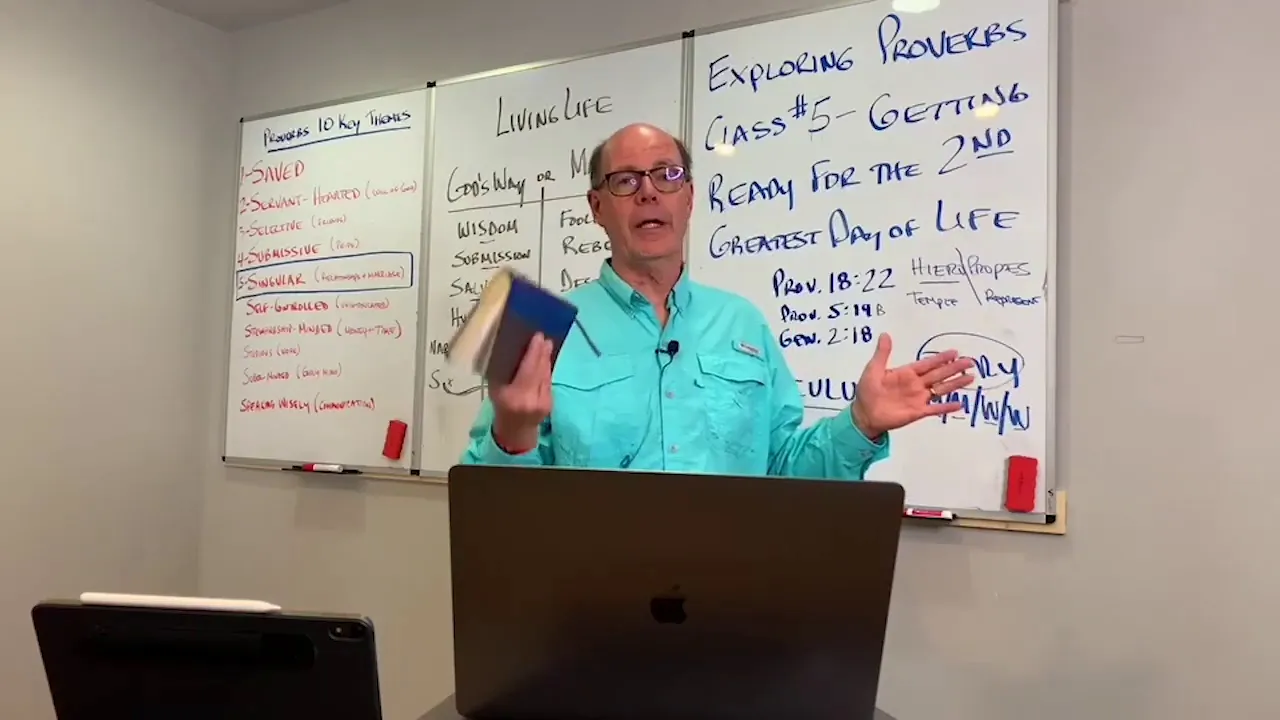 PROVERBS 10 KEY THEMES
1-SAVED
2-SERVANT-HEARTED (
3-SELECTIVE (FRIENDS)
4-SUBMISSIVE
5-SINGULAR (RELATIONSHIPS + MARRIAGE)
SELF-CONTROLLED
STEWARDSHIP-MINDED (MONEY + TIME)
SPEAKING WISELY (COMMUNICATION)
LIVING LIFE
GOD'S WAY OR M
WISDOM
FOOL
SUBMISSION
REB
EXPLORING PROVERBS
CLASS #5 - GETTING
READY FOR THE 2ND
GREATEST DAY OF LIFE
PROV. 18:22
PROV. 5:19B
GEN. 2:18
HIERO/PROPES
TEMPLE
REPRESENT
M/W/W